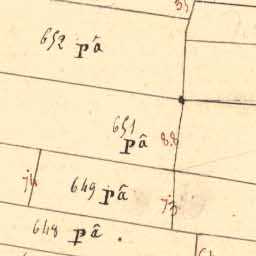 35
652 pâ
651
pâ 8.8
74 649 pâ 73
648 pâ.